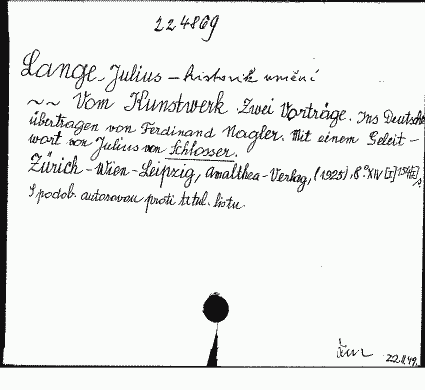 224869
Lange, Julius – historik umění
~~ Vom Kunstwerk. Zwei Vorträge. Ins Deutsche
übertragen von Ferdinand Nagler. Mit einem Geleit-
wort von Julius von Schlosser.
Zürich-Wien-Leipzig, Amalthea-Verlag, (1925), 8° XIV
S podob. autorovou proti titul. listu.
22.II.49.